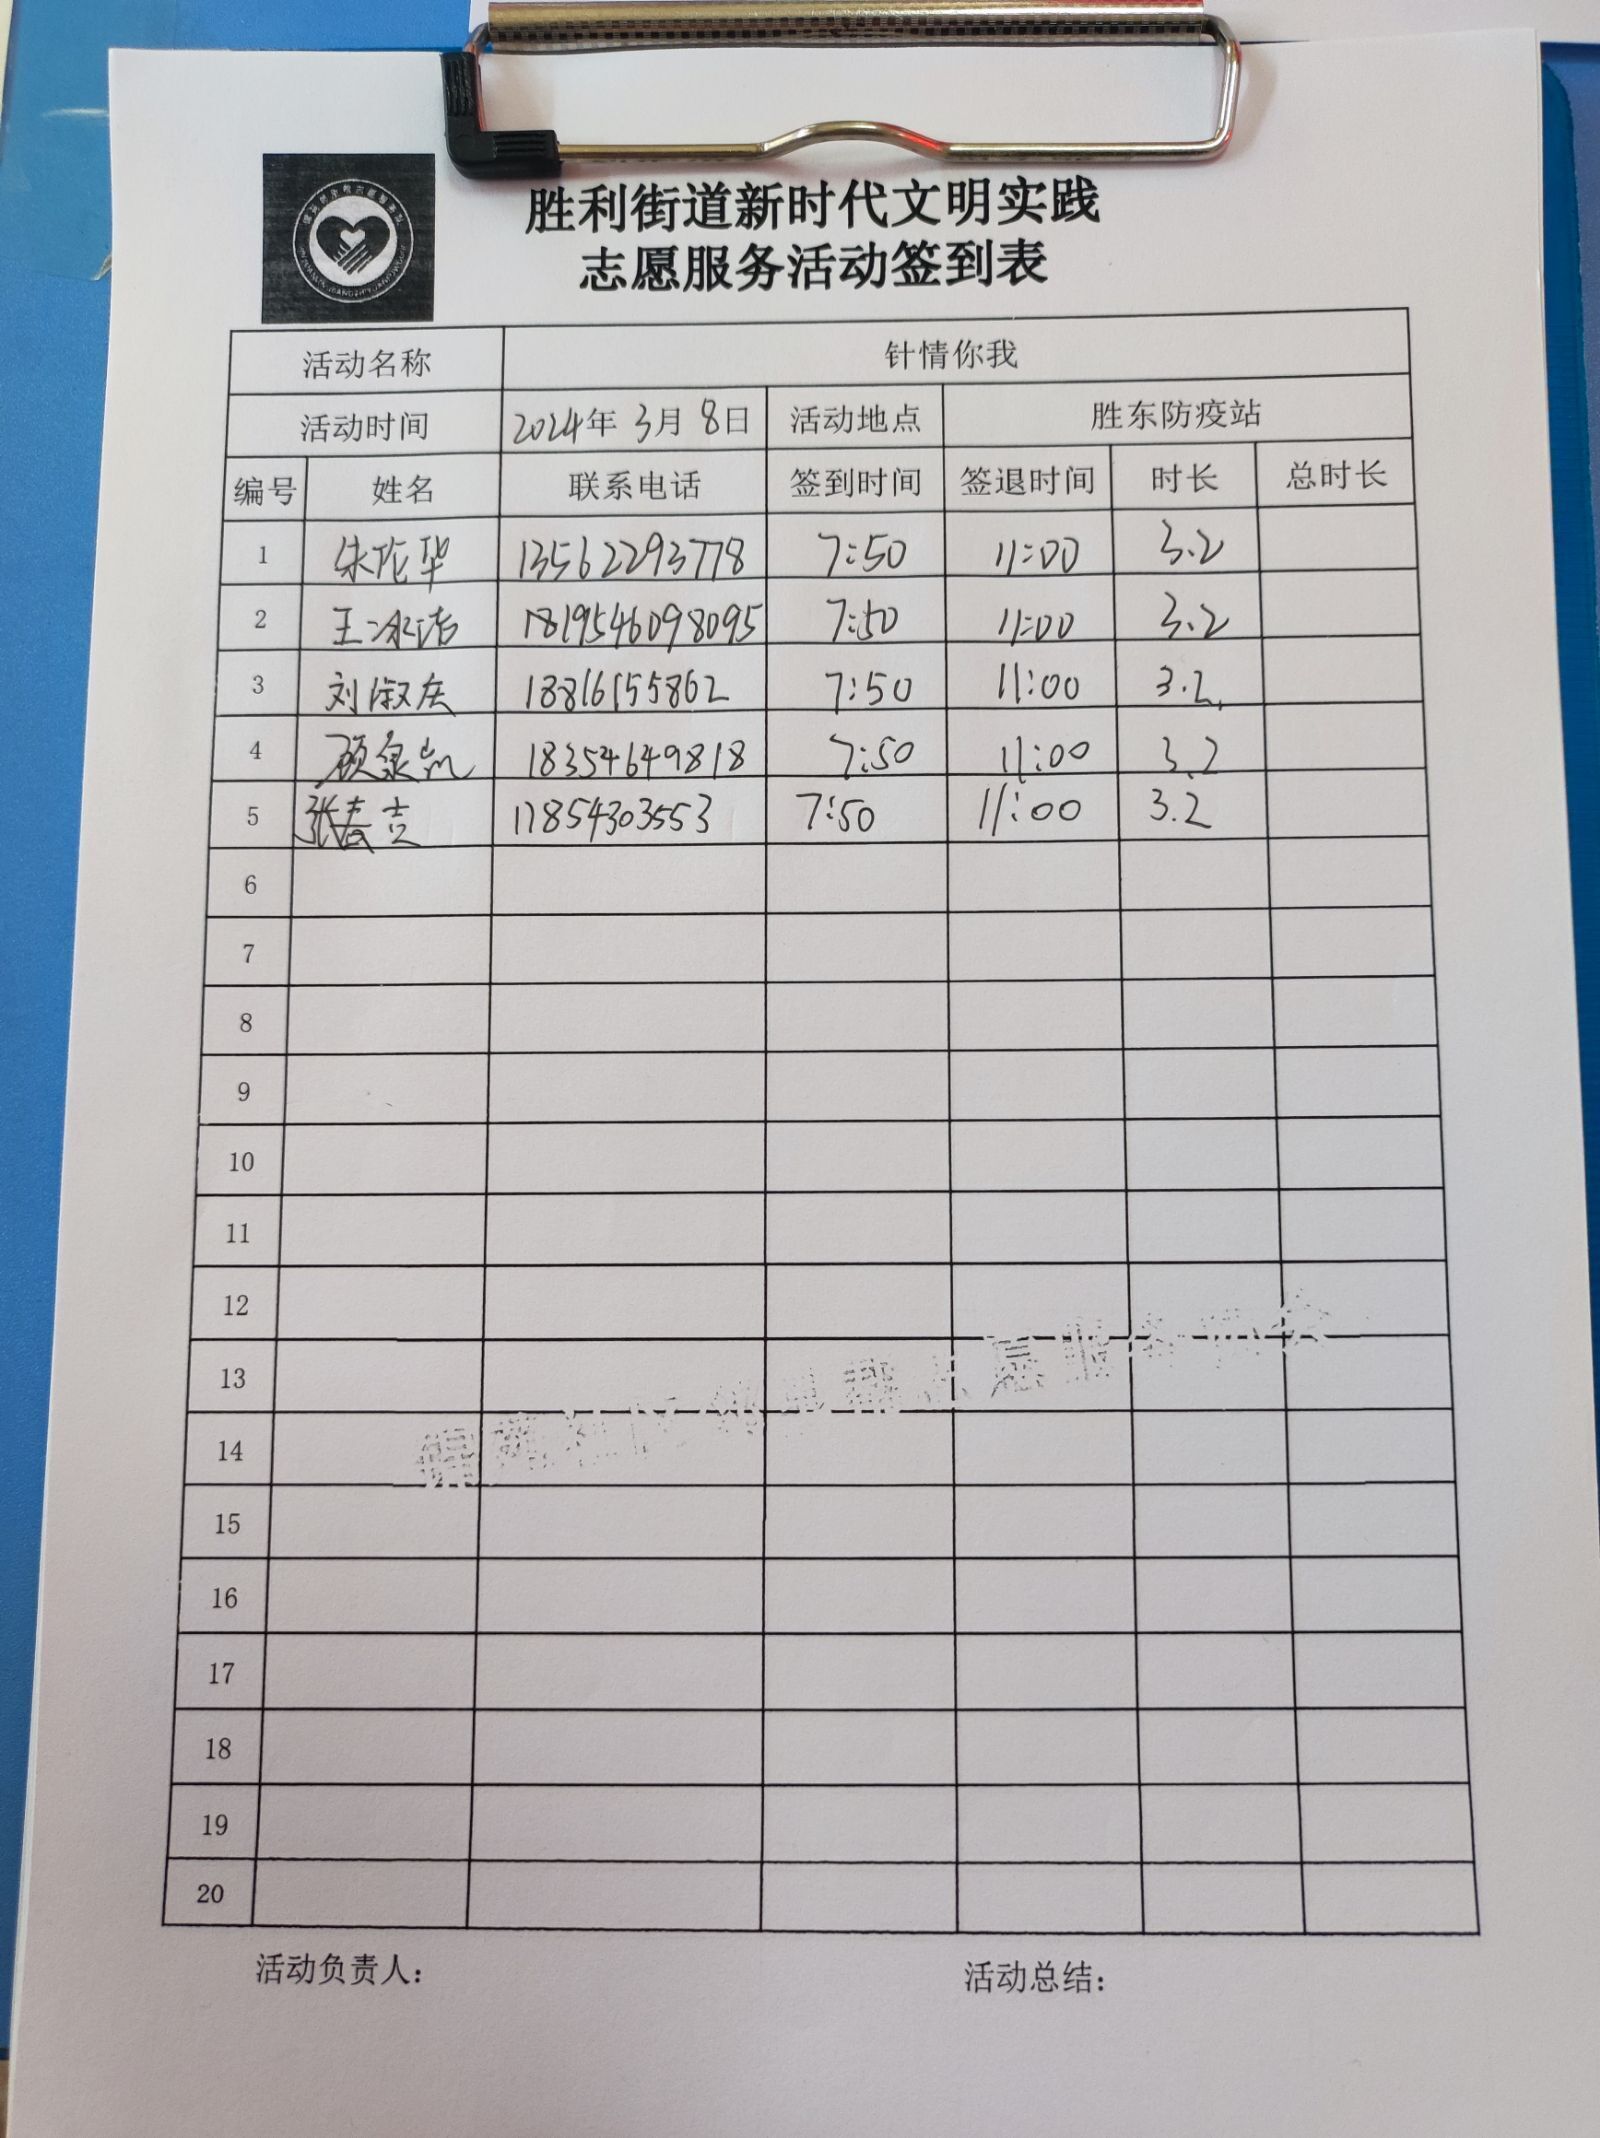 胜利街道新时代文明实践
志愿服务活动签到表
活动名称 针情你我
活动时间 2024年 3月 8日 活动地点 胜东防疫站
编号 姓名 联系电话 签到时间 签退时间 时长 总时长
1 朱花华 13562293778 7:50 11:00 3.2
2 王冰洁 1819546098095 7:50 11:00 3.2
3 刘淑庆 18816155862 7:50 11:00 3.2
4 顾泉凯 18354649818 7:50 11:00 3.2
5 张春吉 17854303553 7:50 11:00 3.2
6
7
8
9
10
11
12
13
14
15
16
17
18
19
20
活动负责人： 活动总结：